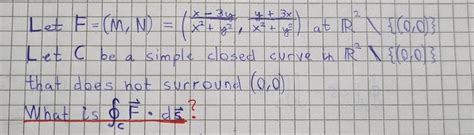 Let F = (M, N) = ( (x - 3y)/(x² + y²) , (y + 3x)/(x² + y²) ) at ℝ² \ {(0,0)}
Let C be a simple closed curve in ℝ² \ {(0,0)}
that does not surround (0,0)
What is ∮_C F⃗ · ds⃗ ?